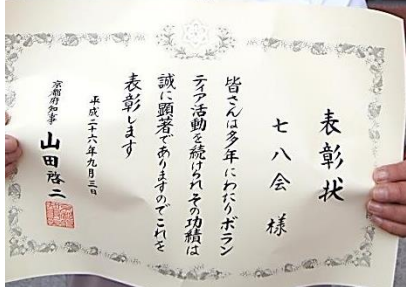 表彰状
七八会 様
皆さんは多年にわたりボラン
ティア活動を続けられその功績は
誠に顕著でありますのでこれを
表彰します
平成二十六年九月三日
京都府知事 山田啓二